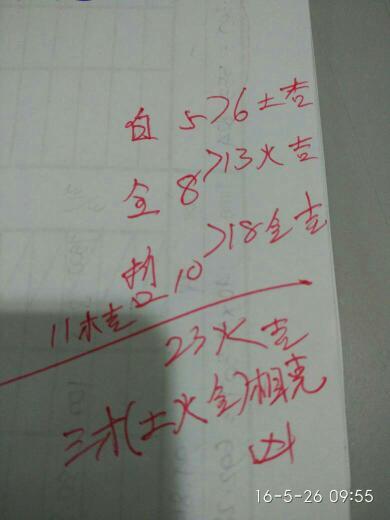 白 5>6土吉
金 8>13火吉
哲 10>18金吉
11木吉
23火吉
三才(土火金)相克
凶
16-5-26 09:55